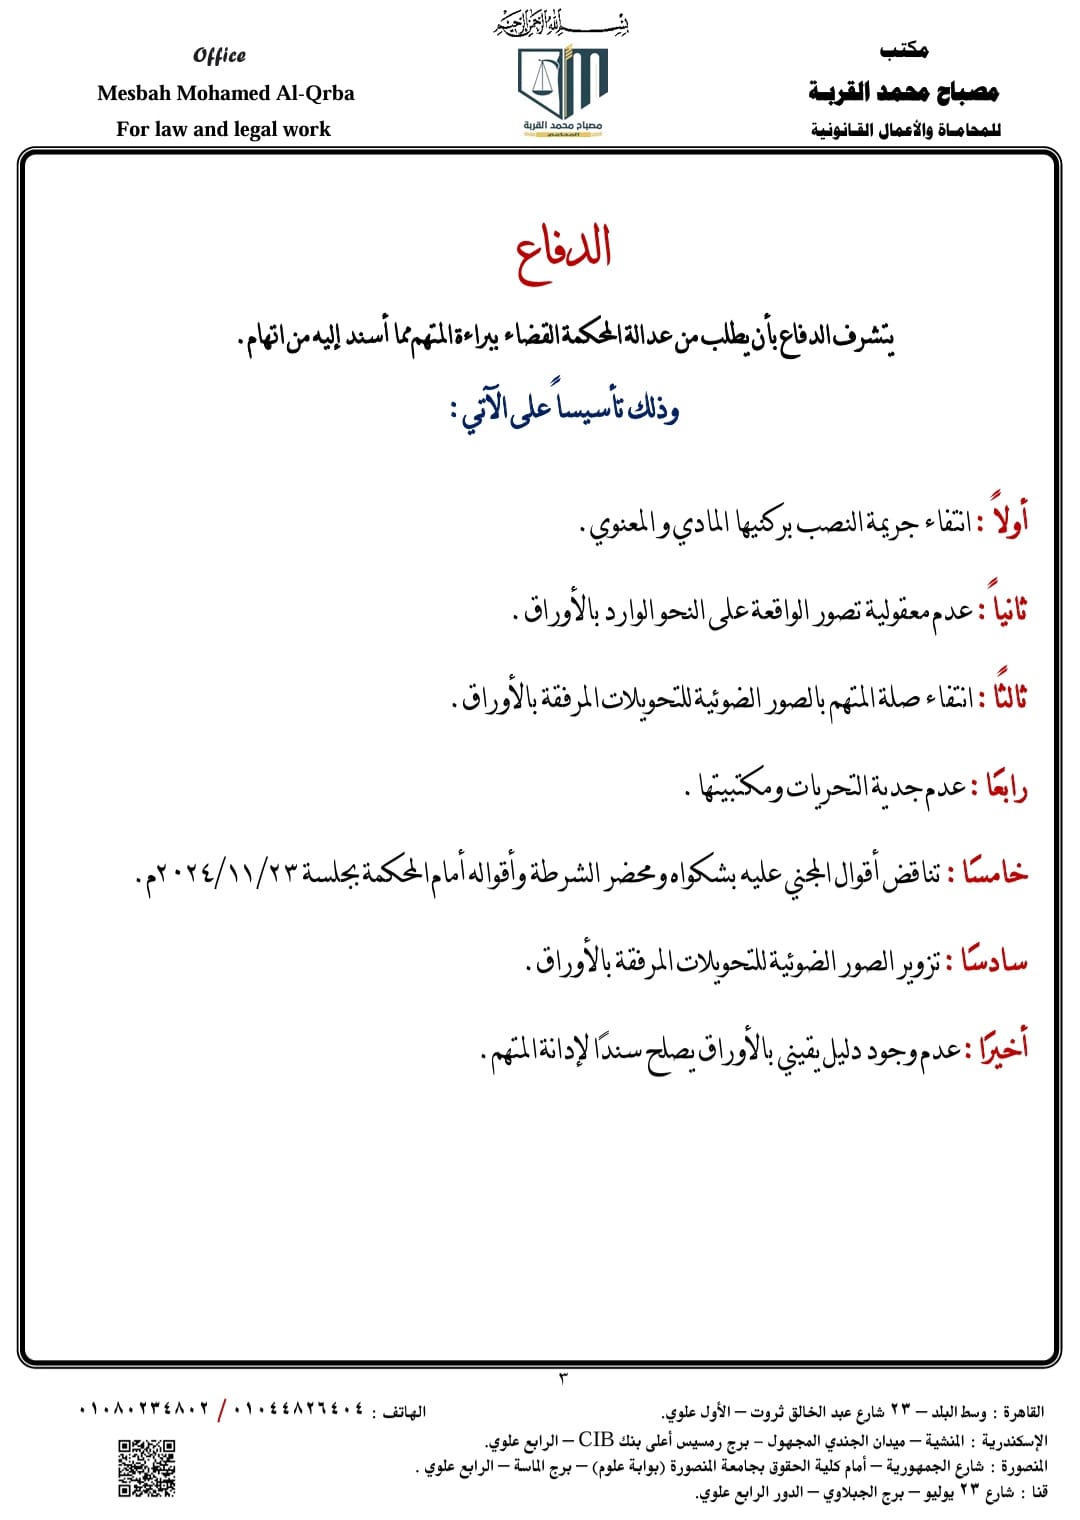 بسم الله الرحمن الرحيم
مكتب
مصباح محمد القربة
للمحاماة والأعمال القانونية
Office
Mesbah Mohamed Al-Qrba
For law and legal work
مصباح محمد القربة
المحامي
الدفاع
يتشرف الدفاع بأن يطلب من عدالة المحكمة القضاء ببراءة المتهم مما أسند إليه من اتهام .
وذلك تأسيساً على الآتي :
أولاً : انتفاء جريمة النصب بركنيها المادي و المعنوي .
ثانياً : عدم معقولية تصور الواقعة على النحو الوارد بالأوراق .
ثالثًا : انتفاء صلة المتهم بالصور الضوئية للتحويلات المرفقة بالأوراق .
رابعًا : عدم جدية التحريات ومكتبيتها .
خامسًا : تناقض أقوال المجني عليه بشكواه ومحضر الشرطة وأقواله أمام المحكمة بجلسة ٢٠٢٤/١١/٢٣م .
سادسًا : تزوير الصور الضوئية للتحويلات المرفقة بالأوراق .
أخيرًا : عدم وجود دليل يقيني بالأوراق يصلح سندًا لإدانة المتهم .
٣
القاهرة : وسط البلد – ٢٣ شارع عبد الخالق ثروت – الأول علوي.
الهاتف : ٠١٠٤٤٨٢٦٤٠٤ / ٠١٠٨٠٢٣٤٨٠٢
الإسكندرية : المنشية – ميدان الجندي المجهول – برج رمسيس أعلى بنك CIB – الرابع علوي.
المنصورة : شارع الجمهورية – أمام كلية الحقوق بجامعة المنصورة (بوابة علوم) – برج الماسة – الرابع علوي .
قنا : شارع ٢٣ يوليو – برج الجبلاوي – الدور الرابع علوي.